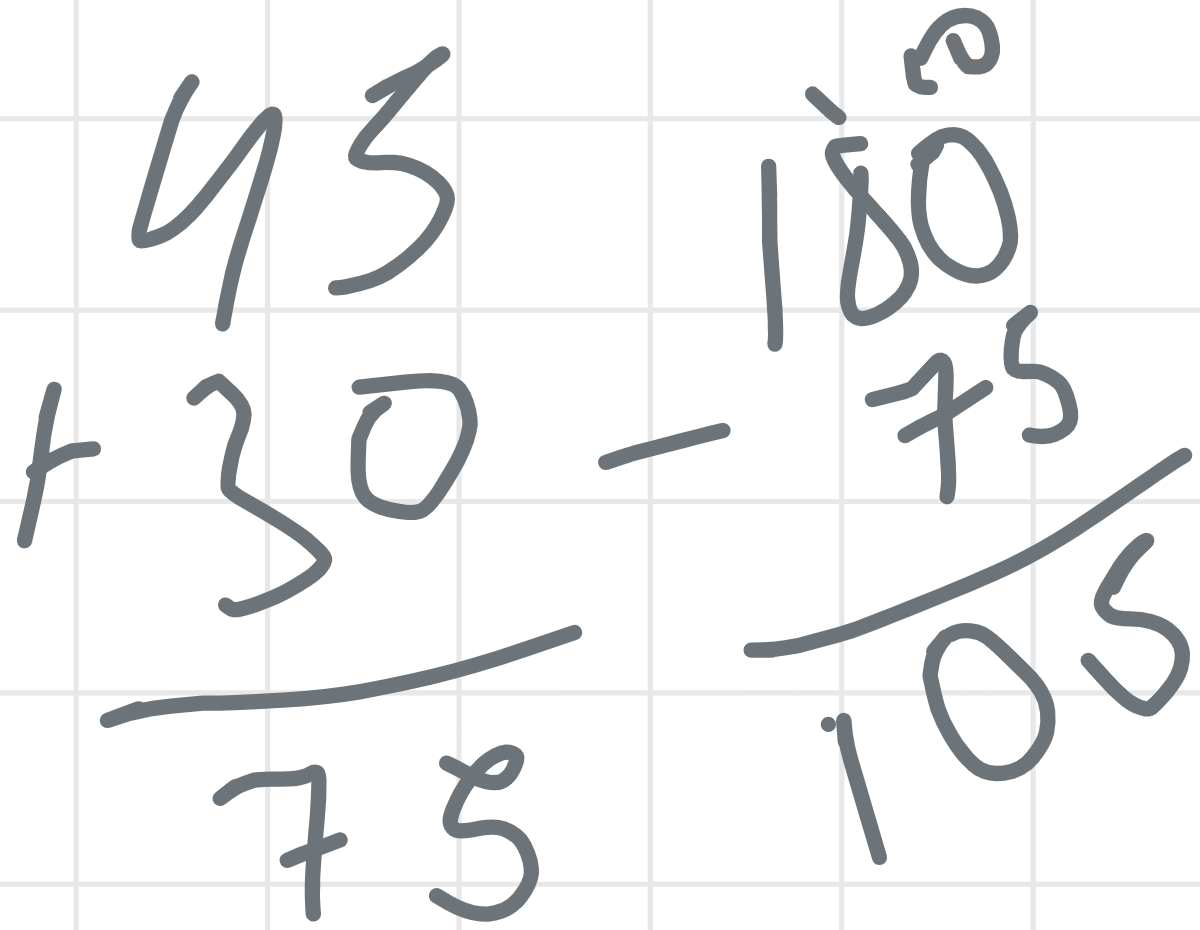 45
+ 30
75
180
- 75
105